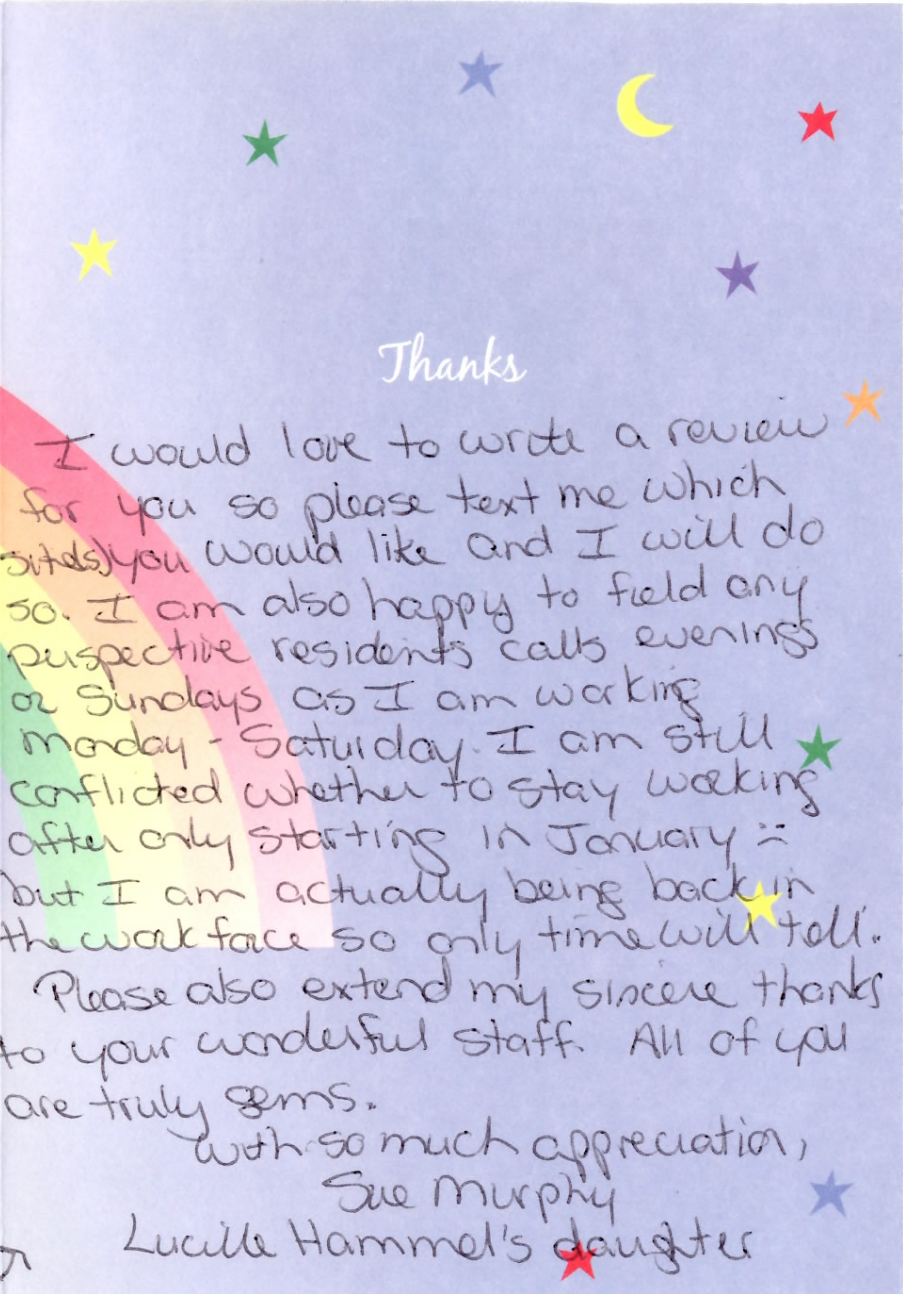 Thanks
I would love to write a review
for you so please text me which
site(s) you would like and I will do
so. I am also happy to field any
perspective residents calls evenings
or Sundays as I am working
Monday - Saturday. I am still
conflicted whether to stay working
after only starting in January :(
but I am actually being back in
the work face so only time will tell.
Please also extend my sincere thanks
to your wonderful staff. All of you
are truly gems.
With so much appreciation,
Sue Murphy
Lucille Hammel's daughter